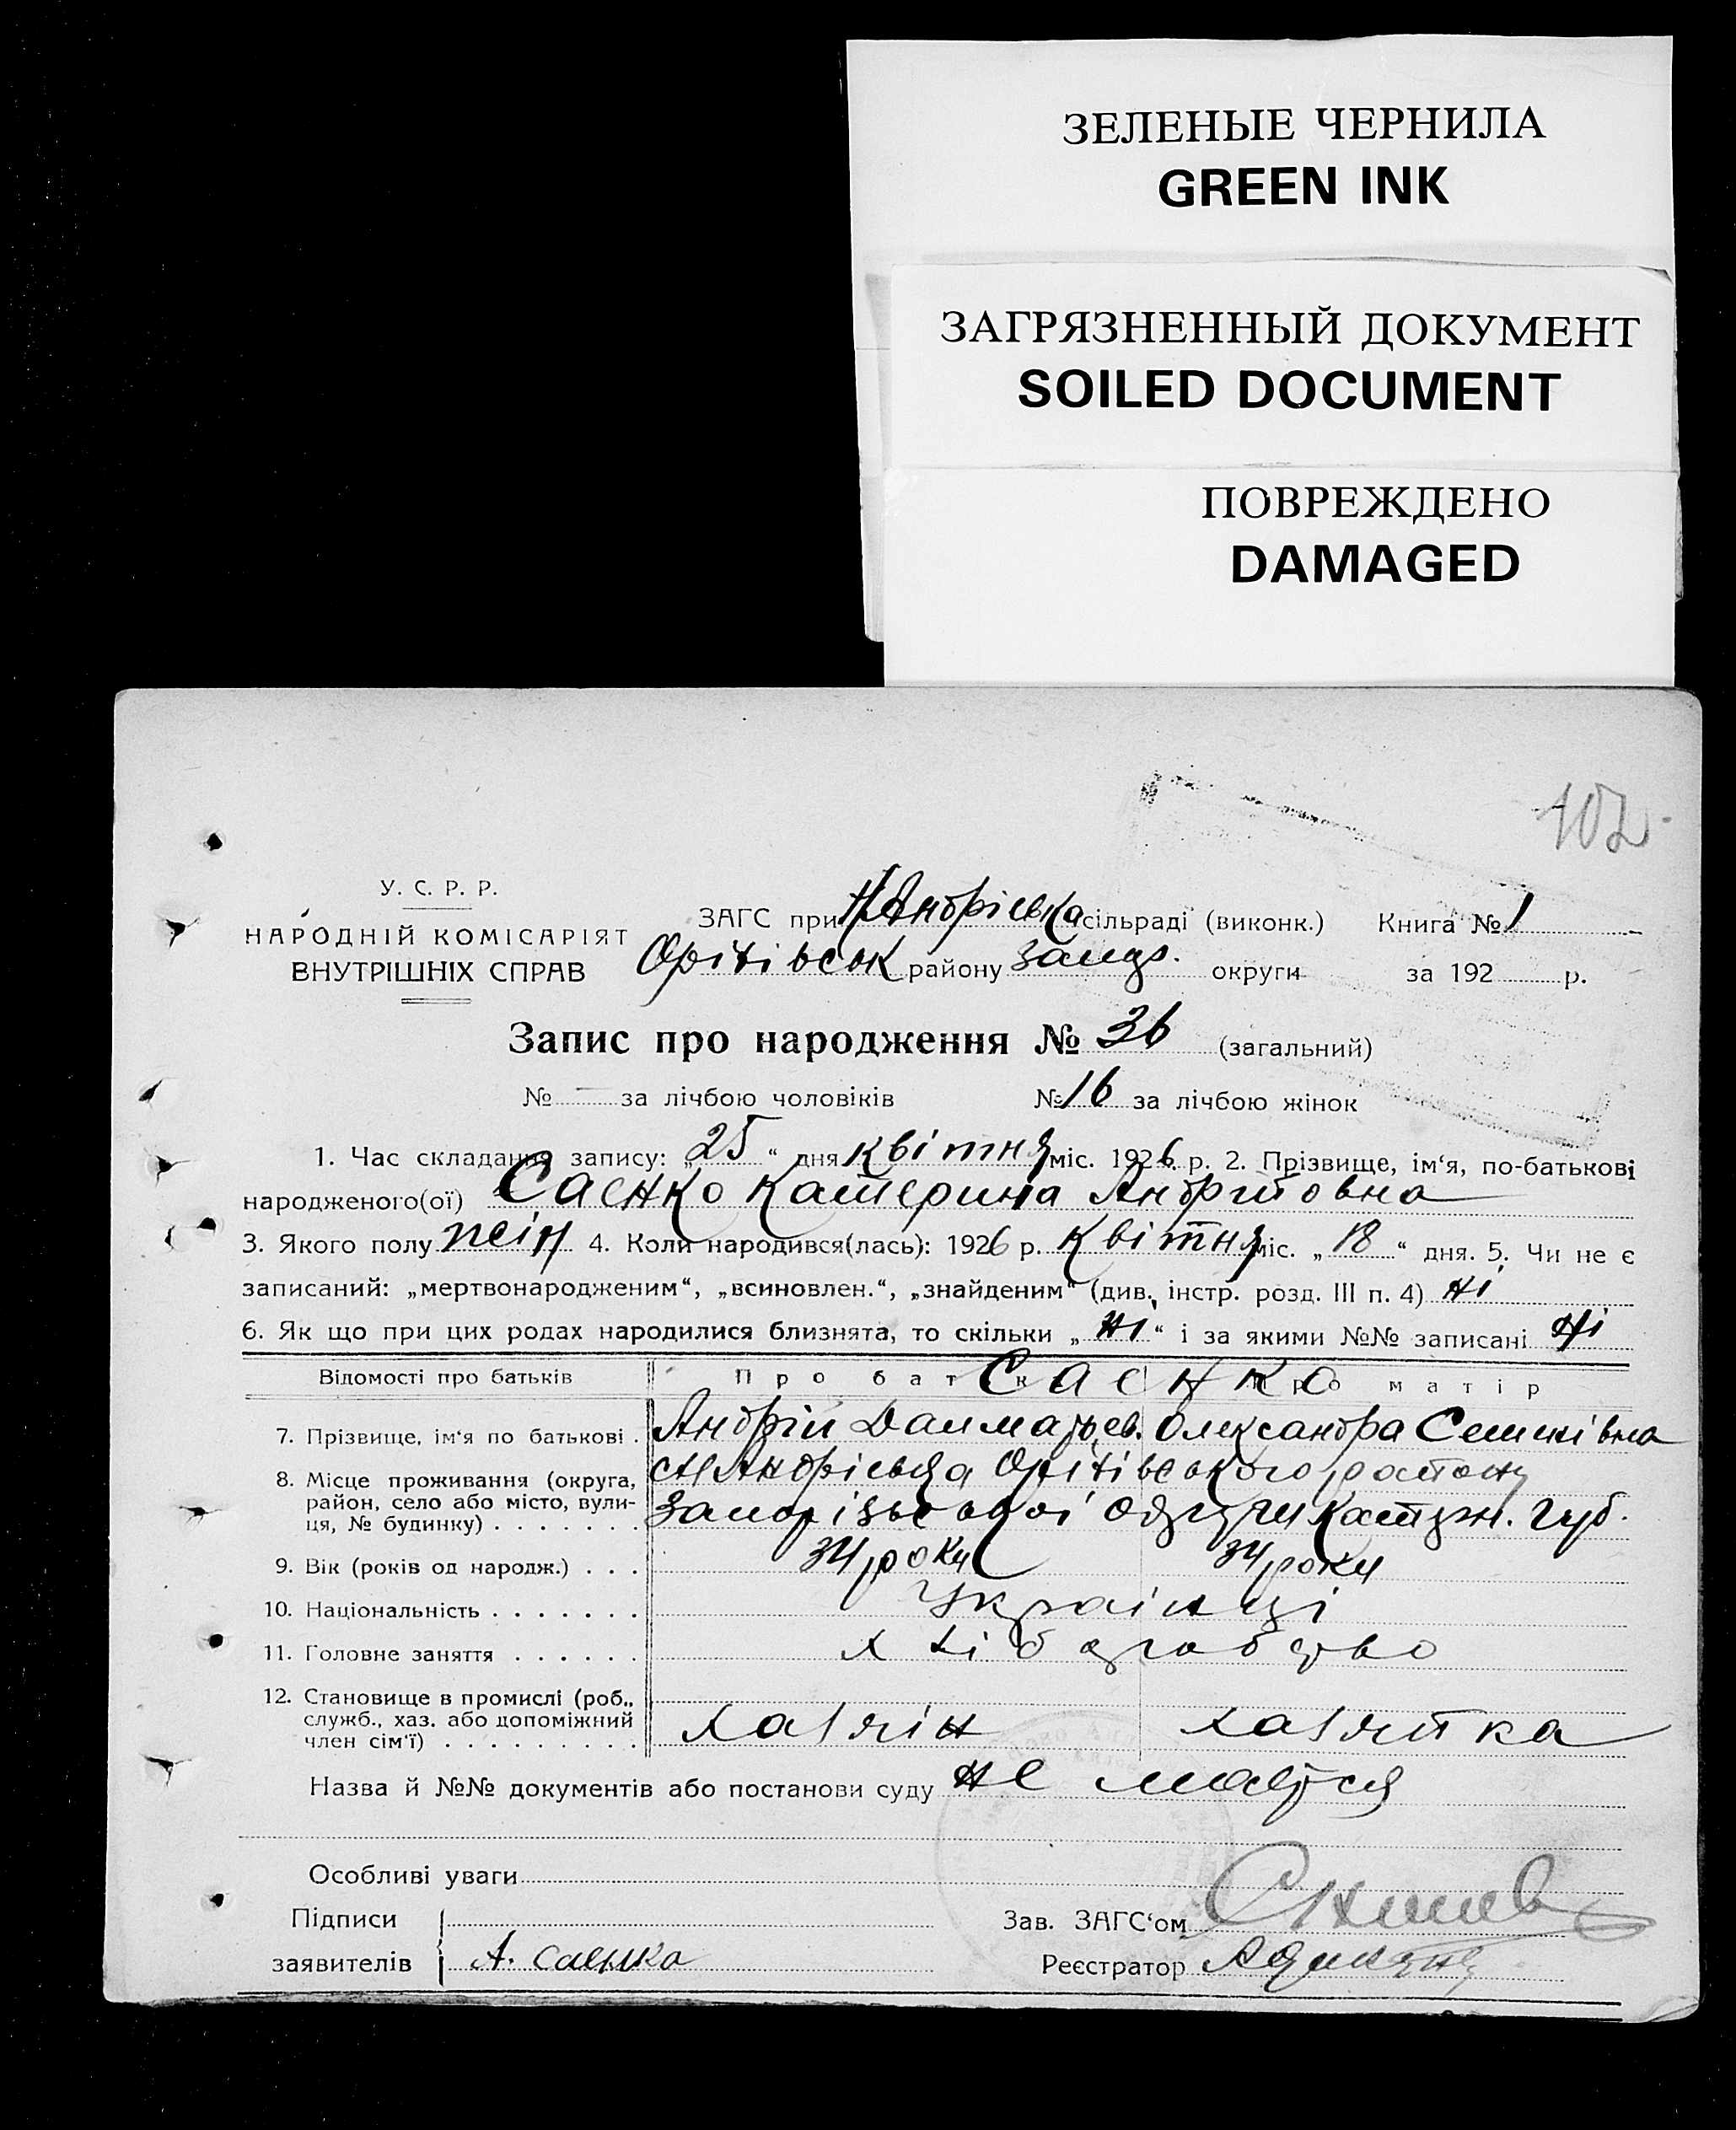 ЗЕЛЕНЫЕ ЧЕРНИЛА
GREEN INK
ЗАГРЯЗНЕННЫЙ ДОКУМЕНТ
SOILED DOCUMENT
ПОВРЕЖДЕНО
DAMAGED
102
У. С. Р. Р.
НАРОДНІЙ КОМІСАРІЯТ
ВНУТРІШНІХ СПРАВ
ЗАГС при Н Андріевка сільраді (виконк.) Книга № 1
Оріхівськ району Запор. округи за 192 р.
Запис про народження № 36 (загальний)
№ — за лічбою чоловіків № 16 за лічбою жінок
1. Час складання запису: „25“ дня квітня міс. 1926 р. 2. Прізвище, ім‘я, по-батькові
народженого(ої) Саенко Катерина Андрійовна
3. Якого полу жін 4. Коли народився(лась): 1926 р. квітня міс. „18“ дня. 5. Чи не є
записаний: „мертвонародженим“, „всиновлен.“, „знайденим“ (див. інстр. розд. III п. 4) ні
6. Як що при цих родах народилися близнята, то скільки „ні“ і за якими №№ записані ні
Відомості про батьків Про батька Про матір
Саенко
7. Прізвище, ім‘я по батькові . Андрій Олександра Семенівна
8. Місце проживання (округа, район, село або місто, вулиця, № будинку) . . . . . . . Андрієвка Оріхівського району
Запорізької округи Катерн. Губ.
9. Вік (років од народж.) . . . 34 роки 34 роки
10. Національність . . . . . . . Українці
11. Головне заняття . . . . . . хліборобство
12. Становище в промислі (роб., служб., хаз. або допоміжний член сім‘ї) . . . . . . . . . хазяїн хазяйка
Назва й №№ документів або постанови суду не мається
Особливі уваги
Підписи
заявителів А. Саенко
Зав. ЗАГС‘ом
Реєстратор